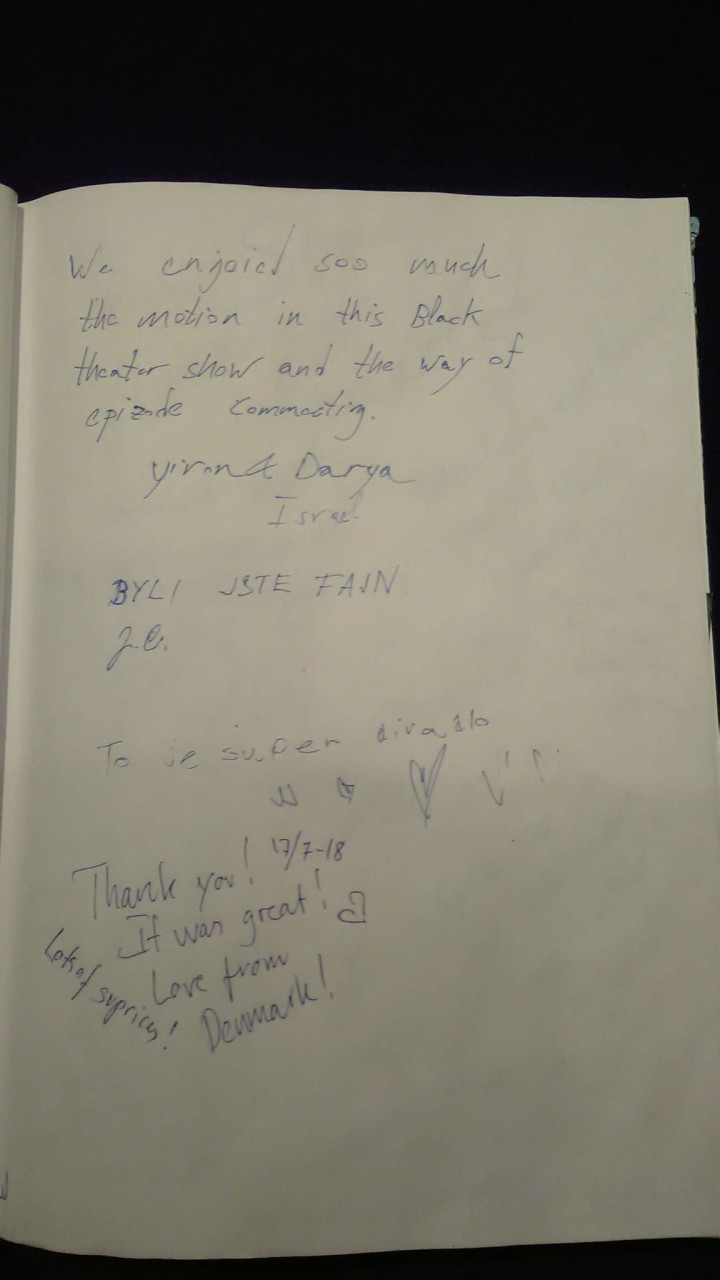 We enjoied soo much
the motion in this Black
theater show and the way of
epizode commecting.
Yiron & Darya
Israel
BYLI JSTE FAJN
J.C.
To je super divadlo
17/7-18
Thank you!
It was great!
Love from
Denmark!
Lots of suprices!